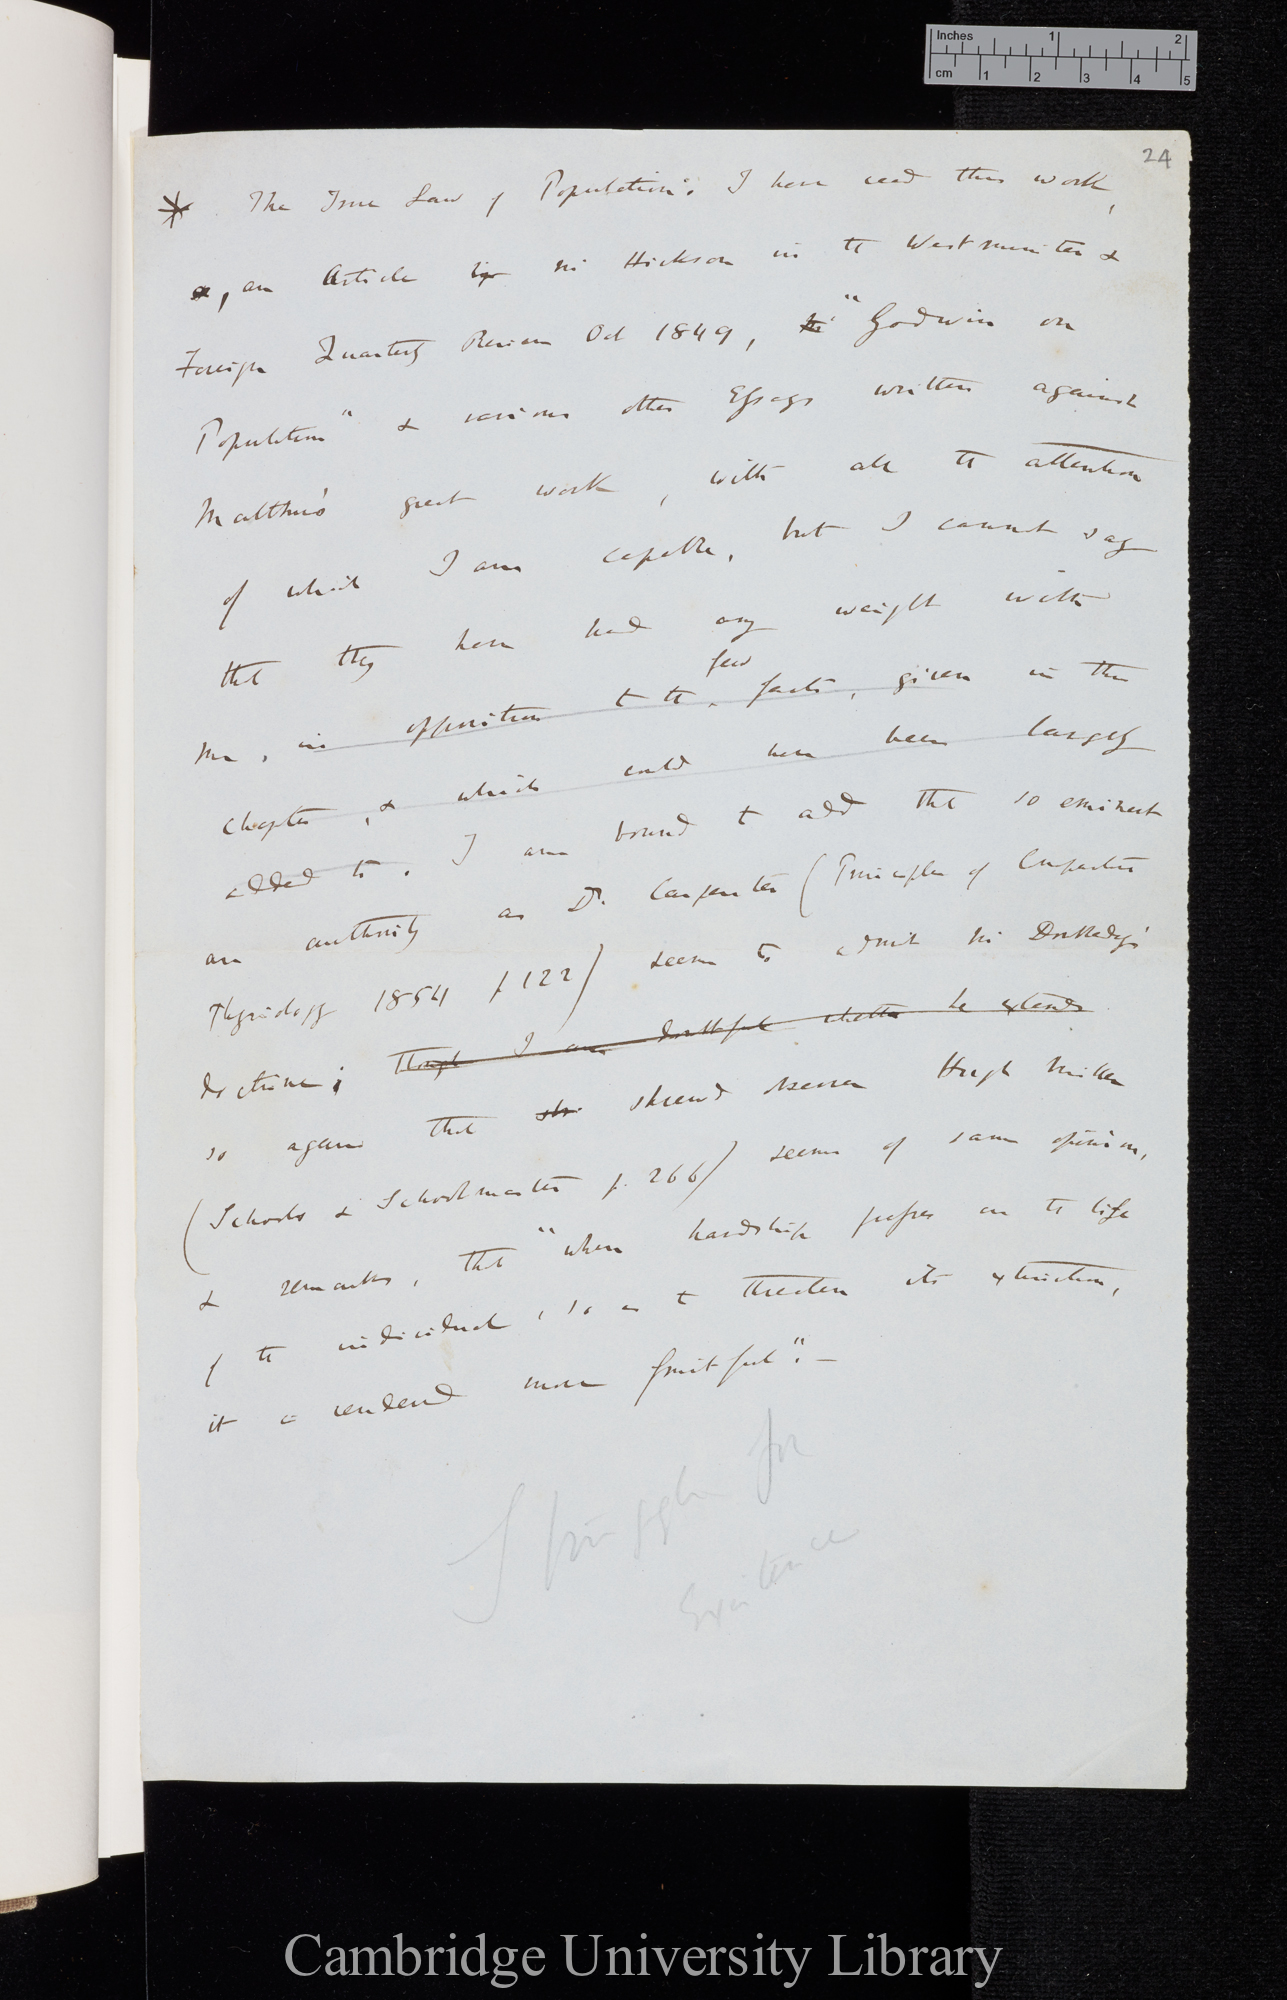 Inches 1 2
cm 1 2 3 4 5
24
* The True Law of Population". I have read this work,
, an Article by Mr Hickson in the Westminster &
Foreign Quarterly Review Oct 1849, the "Godwin on
Population" & various other Essays written against
Malthus's great work, with all the attention
of which I am capable, but I cannot say
that they have had any weight with
few
me, in opposition to the facts, given in this
chapter, & which could have been largely
added to. I am bound to add that so eminent
an authority as Dr. Carpenter (Principles of Comparative
Physiology 1854 p 122) seems to admit Mr Doubleday's
doctrine; though I am doubtful whether he extends
so again that shrewd observer Hugh Miller
(Schools & Schoolmasters p. 266) seems of same opinion,
& remarks, that "when hardship presses on the life
of the individual, so as to threaten its extinction,
it is rendered more fruitful".—
Struggle for
Existence
Cambridge University Library